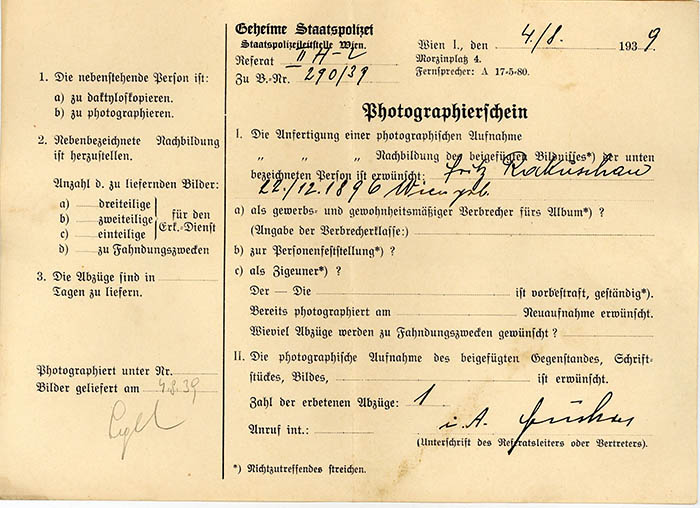 1. Die nebenstehende Person ist:
a) zu daktyloskopieren.
b) zu photographieren.
2. Nebenbezeichnete Nachbildung
ist herzustellen.
Anzahl d. zu liefernden Bilder:
a) dreiteilige
b) zweiteilige
c) einteilige
für den
Erk.-Dienst
d) zu Fahndungszwecken
3. Die Abzüge sind in
Tagen zu liefern.
Photographiert unter Nr.
Bilder geliefert am 4.8.39
Geheime Staatspolizei
Staatspolizeileitstelle Wien.
Referat II H-2
Zu B.-Nr. 290/39
Wien I., den 4./8. 1939
Morzinplatz 4.
Fernsprecher: A 17-5-80.
Photographierschein
I. Die Anfertigung einer photographischen Aufnahme
„ „ „ Nachbildung des beigefügten Bildnisses*) der unten
bezeichneten Person ist erwünscht: Fritz
22./12.1896 Wien geb.
a) als gewerbs- und gewohnheitsmäßiger Verbrecher fürs Album*) ?
(Angabe der Verbrecherklasse:)
b) zur Personenfeststellung*) ?
c) als Zigeuner*) ?
Der — Die ist vorbestraft, geständig*).
Bereits photographiert am Neuaufnahme erwünscht.
Wieviel Abzüge werden zu Fahndungszwecken gewünscht ?
II. Die photographische Aufnahme des beigefügten Gegenstandes, Schrift-
stückes, Bildes, ist erwünscht.
Zahl der erbetenen Abzüge: 1
Anruf int.: i. A.
(Unterschrift des Referatsleiters oder Vertreters).
*) Nichtzutreffendes streichen.